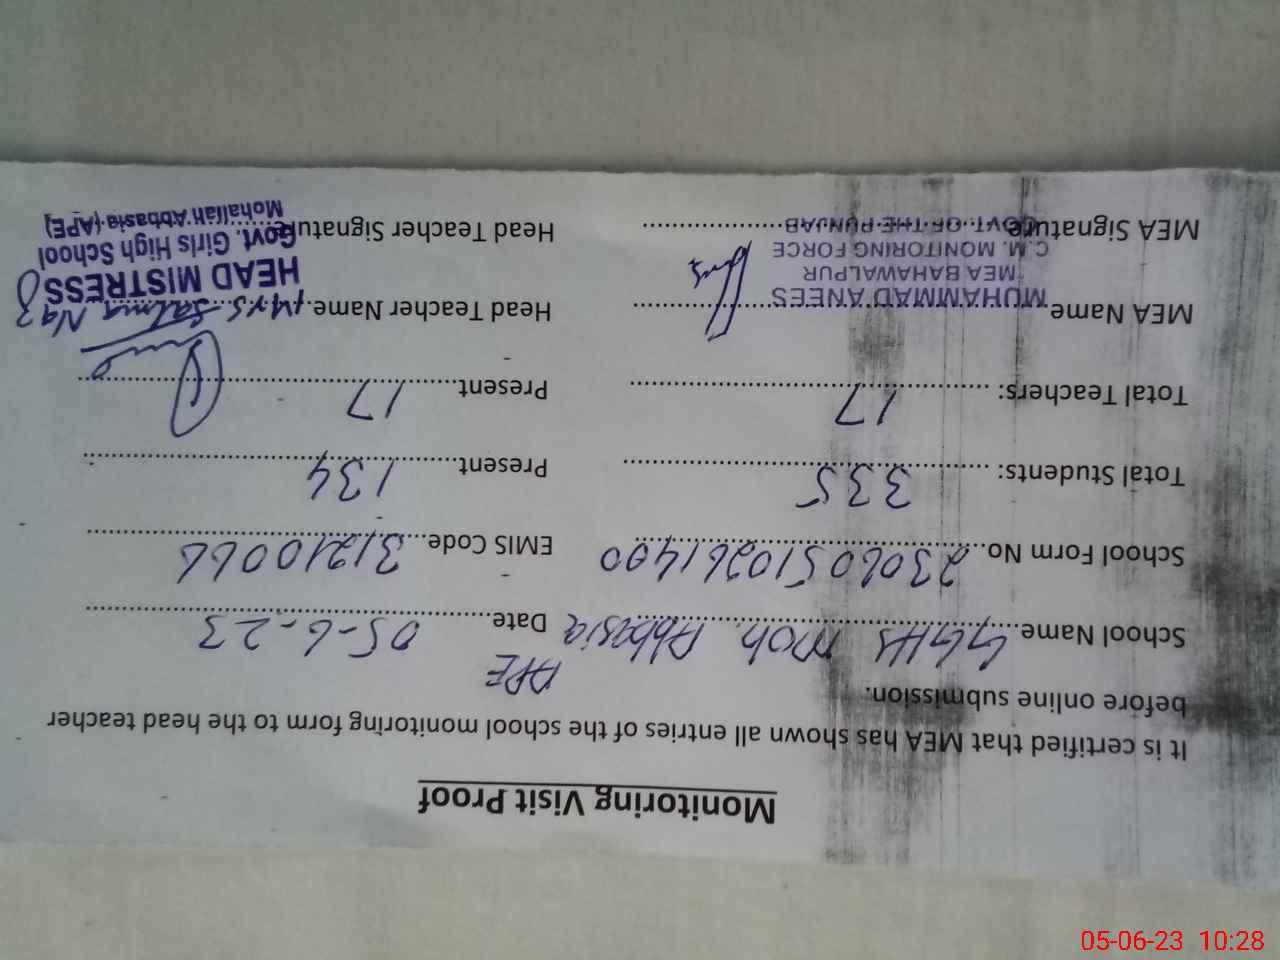 Monitoring Visit Proof
It is certified that MEA has shown all entries of the school monitoring form to the head teacher
before online submission.
APE
School Name GGHS Moh. Abbasia Date 05-6-23
School Form No 23060510261400 EMIS Code 31210066
Total Students: 335 Present 134
Total Teachers: 17 Present 17
MEA Name MUHAMMAD ANEES Head Teacher Name Mrs Salma Naz
MEA BAHAWALPUR HEAD MISTRESS
C.M. MONITORING FORCE Govt. Girls High School
MEA Signature GOVT. OF THE PUNJAB Head Teacher Signature Mohallah Abbasia (APE)
05-06-23 10:28